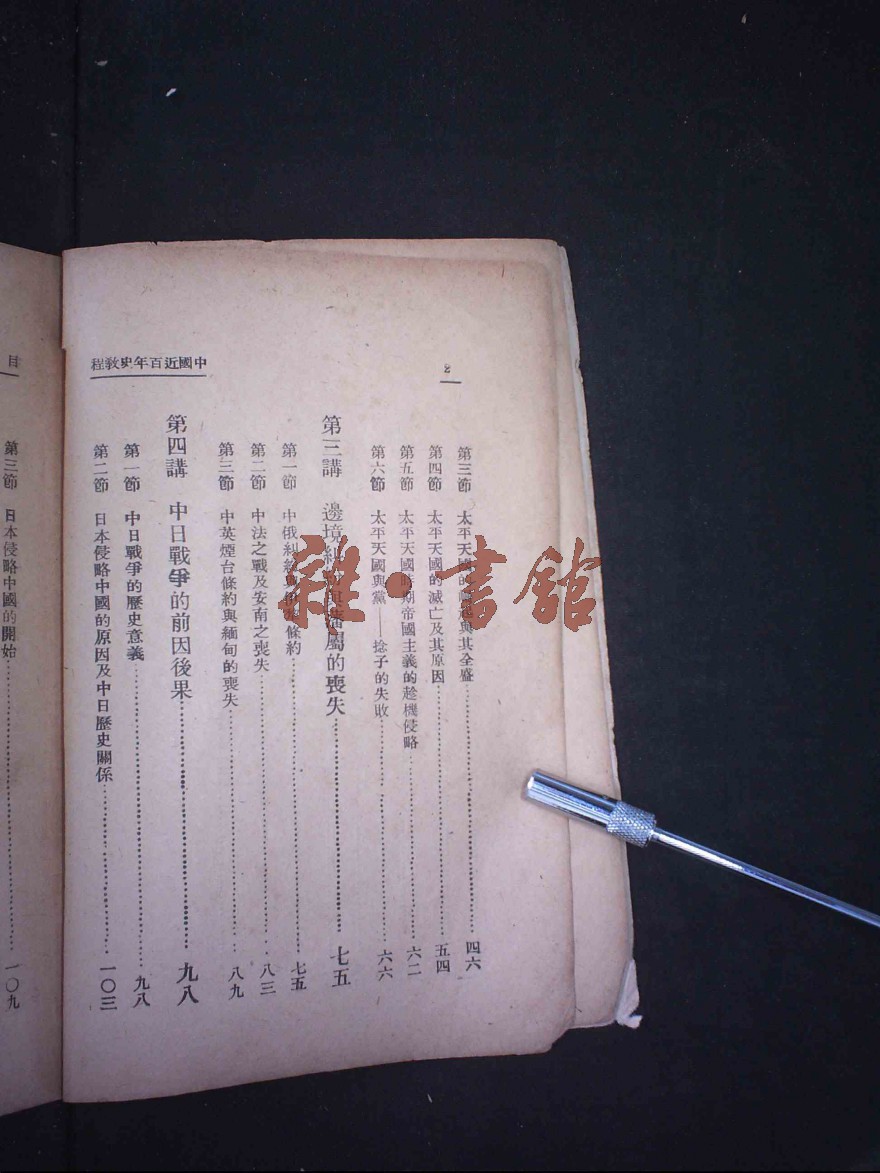 中國近百年史教程
2
第三節 太平天國的崛起與其全盛 四六
第四節 太平天國的滅亡及其原因 五四
第五節 太平天國時期帝國主義的趁機侵略 六二
第六節 太平天國與黨——捻子的失敗 六六
第三講 邊境糾紛與藩屬的喪失 七五
第一節 中俄糾紛與伊犂條約 七五
第二節 中法之戰及安南之喪失 八三
第三節 中英煙台條約與緬甸的喪失 八九
第四講 中日戰爭的前因後果 九八
第一節 中日戰爭的歷史意義 九八
第二節 日本侵略中國的原因及中日歷史關係 一〇三
目
第三節 日本侵略中國的開始 一〇九
雜·書館